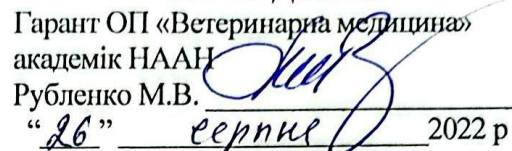 Гарант ОП «Ветеринарна медицина»
академік НААН
Рубленко М.В.
“26” серпня 2022 р